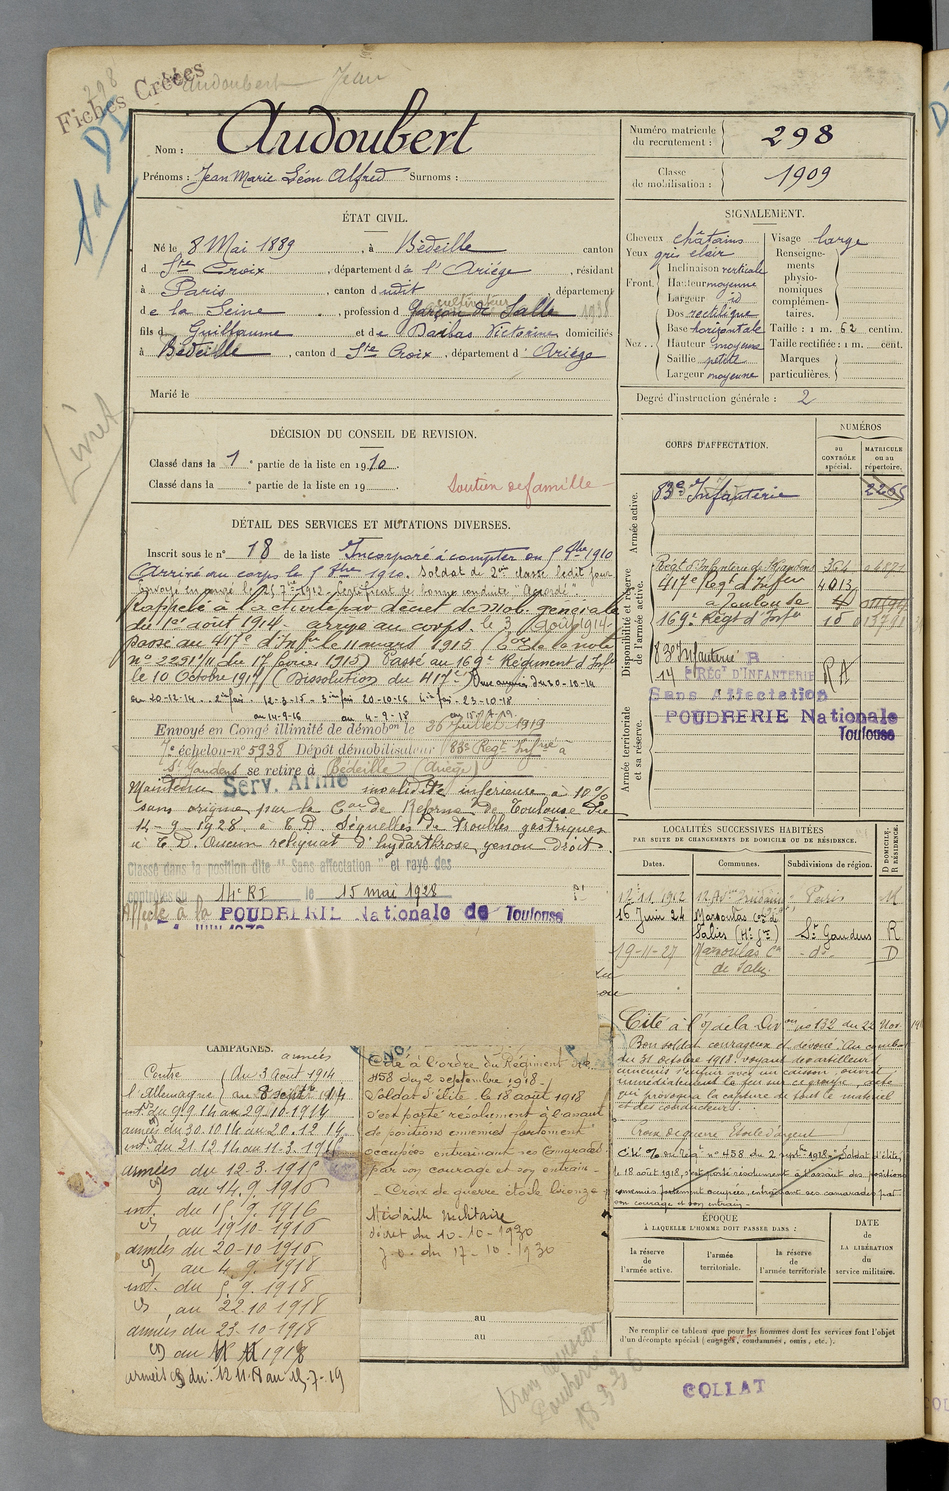 Audoubert Jean
298
Fiches Créées
Nom : Audoubert
Prénoms : Jean Marie Léon Alfred Surnoms :
Numéro matricule du recrutement : 298
Classe de mobilisation : 1909
ÉTAT CIVIL.
Né le 8 Mai 1889, à Bédeille canton
d Ste Croix, département de l'Ariége, résidant
à Paris, canton dudit département
de la Seine, profession de Garçon de Salle cultivateur 1938
fils de Guillaume et de Barbas Victorine domiciliés
à Bédeille, canton d Ste Croix, département d' Ariége
Marié le
SIGNALEMENT.
Cheveux châtains
Yeux gris clair
Front. Inclinaison verticale
Hauteur moyenne
Largeur id
Nez. Dos rectiligne
Base horizontale
Hauteur moyenne
Saillie petite
Largeur moyenne
Visage large
Renseignements physionomiques complémentaires.
Taille : 1 m. 62 centim.
Taille rectifiée : 1 m. cent.
Marques particulières.
Degré d'instruction générale : 2
DÉCISION DU CONSEIL DE REVISION.
Classé dans la 1e partie de la liste en 1910.
Classé dans la e partie de la liste en 19
Soutien de famille
DÉTAIL DES SERVICES ET MUTATIONS DIVERSES.
Inscrit sous le n° 18 de la liste Incorporé à compter du 5 8bre 1910
Arrivé au corps le 5 8bre 1910. Soldat de 2me classe ledit jour
Envoyé en congé le 25 7bre 1912. Certificat de bonne conduite "Accordé".
Rappelé à l'activité par décret de Mob. générale
du 1er août 1914 - arrivé au corps le 3 août 1914 -
Passé au 417e d'Infrie le 11 mars 1915
n° 2251/11 du 17 février 1915) Passé au 169e Régiment d'Infrie
le 10 Octobre 1917 (Dissolution du 417e) 30-10-14
au 20-12-14 12-3-15 20-10-16 23-10-18
au 14-9-16 au 4-9-18
Envoyé en Congé illimité de démobon le 26 Juillet 1919
7e échelon n° 5938 Dépôt démobilisateur 83e Régt Infrie à
St Gaudens se retire à Bédeille (Ariège)
Maintenu Serv. Armé invalidité inférieure à 10%
sans origine par la Con de Réforme de Toulouse du
14-9-1928. à T.D. Séquelles de troubles gastriques
n° T.D. Aucun reliquat d'hydarthrose genou droit.
Classé dans la position dite "Sans affectation" et rayé des
contrôles du 14e RI le 15 mai 1928
Affecté à la POUDRERIE Nationale de Toulouse
CORPS D'AFFECTATION.
NUMÉROS
au contrôle spécial.
MATRICULE ou au répertoire.
Armée active.
83e Infanterie 2265
Disponibilité et réserve de l'armée active.
Régt d'Infanterie de St Gaudens
417e Régt d'Infrie 4013
à Toulouse
169e Régt d'Infie
Armée territoriale et sa réserve.
83e Infanterie
14e RÉGt D'INFANTERIE RA
Sans Affectation
POUDRERIE Nationale
Toulouse
LOCALITÉS SUCCESSIVES HABITÉES
PAR SUITE DE CHANGEMENTS DE DOMICILE OU DE RÉSIDENCE.
Dates.
Communes.
Subdivisions de région.
D DOMICILE. R RÉSIDENCE.
Paris
16 Juin 24 Marsoulas Con de Salies (Hte Gne) St Gaudens R
19-11-27 Marsoulas Con de Salies - do - D
Cité à l'O/ de la Divon n° 132 du 22 Nov.
Bon soldat courageux et dévoué. Au combat
du 31 octobre 1918, voyant des artilleurs
ennemis s'enfuir avec un caisson, ouvrit
immédiatement le feu sur ce groupe, acte
qui provoqua la capture de tout le matériel
et des conducteurs.
Croix de guerre Etoile d'argent
Cité O/ du Régt n° 458 du 2 septbre 1918 "Soldat d'élite,
le 18 août 1918, s'est porté résolument à l'assaut des positions
ennemies fortement occupées, entraînant ses camarades par
son courage et son entrain -
CAMPAGNES.
Contre l'Allemagne
armées
du 3 août 1914
au 8 septbre 1914
int. du 9.9.14 au 29.10.1914
armées du 30.10.14 au 20.12.14
int. du 21.12.14 au 11-3-1915
armées du 12-3-1915
au 14.9.1916
int. du 15.9.1916
au 19.10-1916
armées du 20-10-1916
au 4.9.1918
int. du 5.9.1918
au 22.10.1918
armées du 23-10-1918
au 11 11 1918
armées du 12.11.18 au 15-7-19
Cité à l'ordre du Régiment n°
458 du 2 septembre 1918 -
Soldat d'élite - le 18 août 1918
s'est porté résolument à l'assaut
de positions ennemies fortement
occupées entraînant ses camarades
par son courage et son entrain -
- Croix de guerre étoile bronze
Médaille militaire
décret du 10-10-1930
J.O. du 17-10-1930
au
au
ÉPOQUE
À LAQUELLE L'HOMME DOIT PASSER DANS :
la réserve de l'armée active.
l'armée territoriale.
la réserve de l'armée territoriale
DATE DE LA LIBÉRATION du service militaire.
Ne remplir ce tableau que pour les hommes dont les services font l'objet
d'un décompte spécial (engagés, condamnés, omis, etc.).
COLLAT